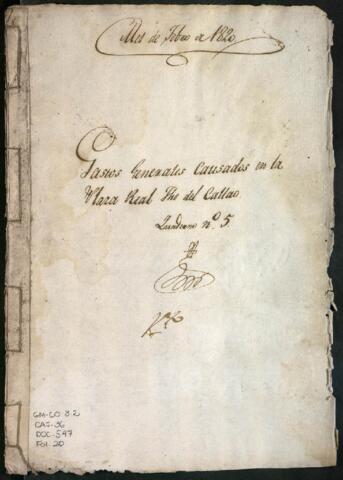 Mes de Febro de 1820
Gastos Generales Causados en la
Plaza Real Phe del Callao.
Quaderno nº. 5.
GM-CO 3.2
CAJ-36
DOC-547
Fol. 20